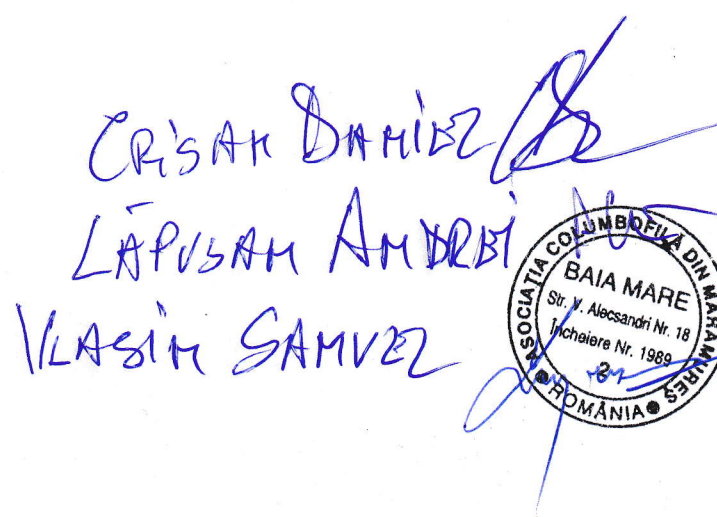 CRISAN DANIEL
LĂPUSAN ANDREI
VLASIN SAMUEL
ASOCIAȚIA COLUMBOFILĂ DIN MARAMUREȘ
BAIA MARE
Str. V. Alecsandri Nr. 18
Încheiere Nr. 1989
2
ROMÂNIA